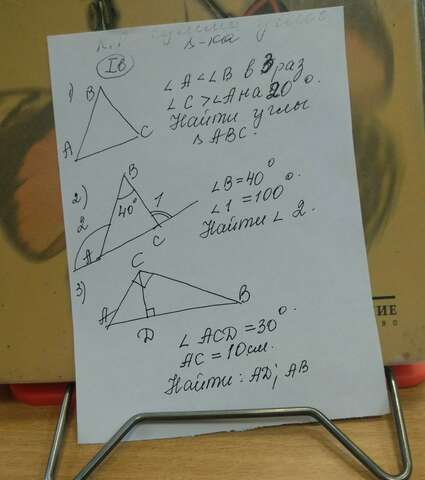 К.Р. Сумма углов
Δ-ка
Iв
1)
B
A
C
∠A<∠B в 3 раз
∠C>∠A на 20°.
Найти углы
ΔABC.
2)
B
40°
1
2
A
C
∠B=40°
∠1=100°.
Найти ∠2.
3)
C
A
D
B
∠ACD=30°.
AC=10см.
Найти: AD; AB
ИЕ
ВО